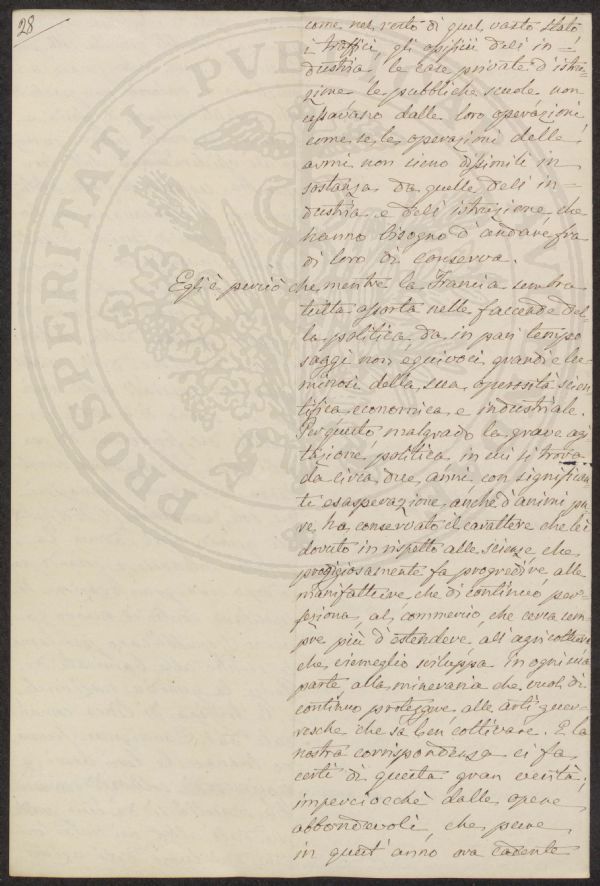 28
come nel resto di quel vasto stato
i traffici, gli opificii dell' in-
dustria, le case private d'istru-
zione le pubbliche scuole non
cessavano dalle loro operazioni
come se le operazioni delle
armi non sieno dissimili in
sostanza da quelle dell' in-
dustria e dell' istruzione che
hanno bisogno d'andare fra
di loro di conserva.
Egli è perciò che mentre la Francia sembra
tutta assorta nelle faccende del
la politica, da in pari tempo
saggi non equivoci grandi e lu-
minosi della sua operosità scien
tifica economica e industriale.
Per questo malgrado la grave agi
tazione politica in cui si trova
da circa due anni con significan
te esasperazione anche d'animi pu
re ha conservato il carattere che le è
dovuto in rispetto alle scienze che
prodigiosamente fa progredire alle
manifatture che di continuo per-
feziona, al commercio che cerca sem
pre più d'estendere all' agricoltura
che viemeglio sviluppa in ogni sua
parte alla mineraria che vuol di
continuo proteggere alle arti guer-
resche che sa ben coltivare. E la
nostra corrispondenza ci fa
certi di questa gran verità;
imperciocchè dalle opere
abbondevoli, che pure
in quest' anno ora cadente
PROSPERITATI PUBLICAE